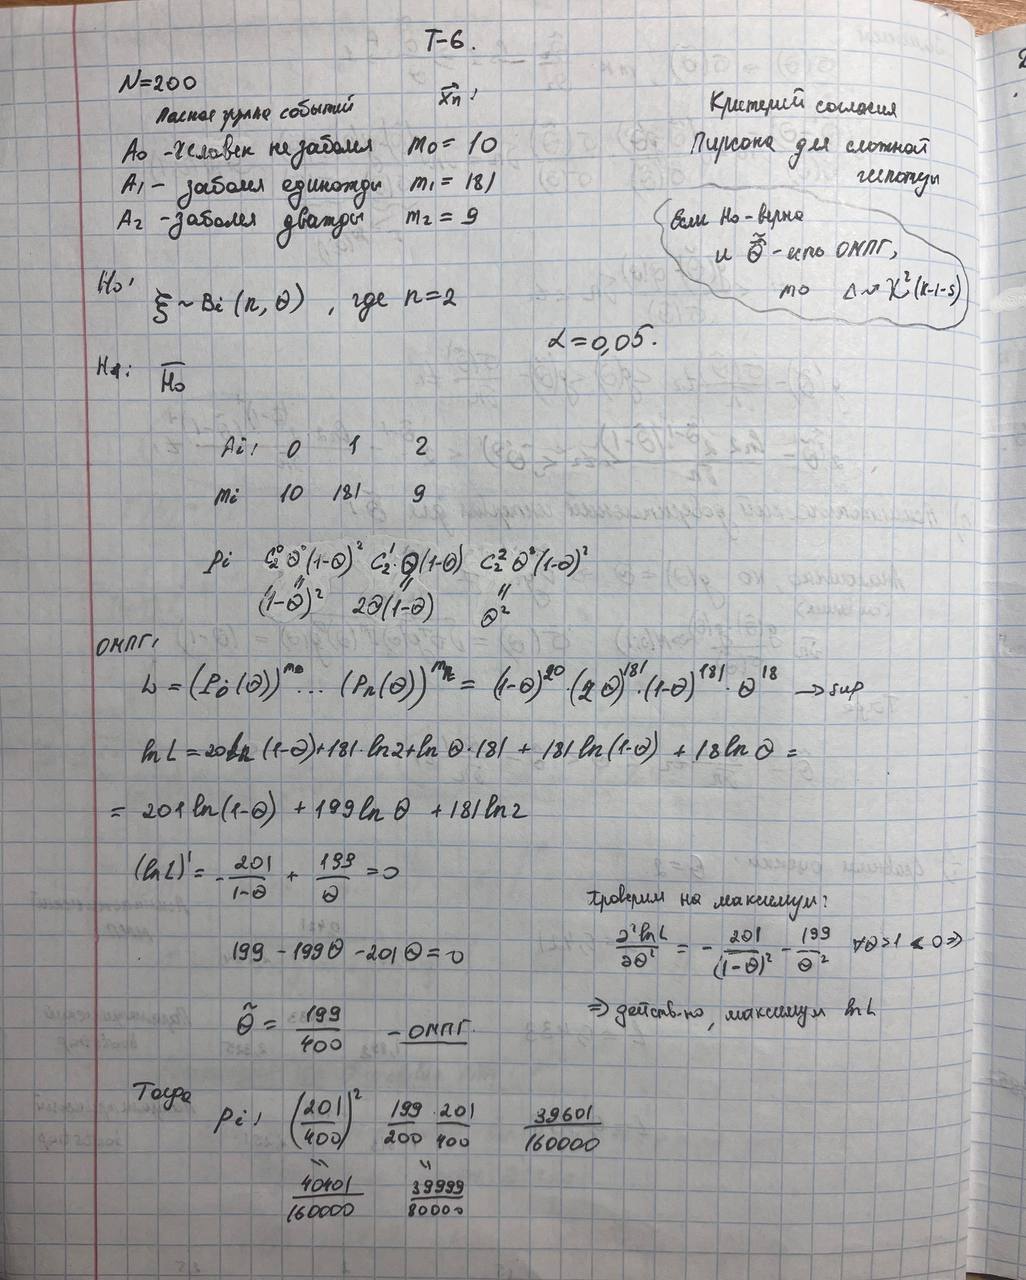 Т-6.
N=200
Полная группа событий  X⃗n:
A₀ - человек не заболел  m₀ = 10
A₁ - заболел единожды  m₁ = 181
A₂ - заболел дважды  m₂ = 9
Критерий согласия
Пирсона для сложной
гипотезы
Если H₀-верна
и θ̃⃗ - ОМПГ,
то Δ ~ χ²(k-1-s)
H₀:
ξ ~ Bi(n, θ), где n=2
α = 0,05.
H₁: H̅₀
Ai: 0 1 2
mi 10 181 9
Pi C₂⁰θ⁰(1-θ)² C₂¹·θ(1-θ) C₂²θ²(1-θ)²
(1-θ)² 2θ(1-θ) θ²
ОМПГ:
L = (P₀(θ))^m₀ ... (Pn(θ))^m₂ = (1-θ)²⁰·(2θ)¹⁸¹·(1-θ)¹⁸¹·θ¹⁸ → sup
ln L = 20 ln(1-θ)+181·ln2+ln θ·181 + 181 ln(1-θ) + 18 ln θ =
= 201 ln(1-θ) + 199 ln θ + 181 ln 2
(ln L)' = - 201/(1-θ) + 199/θ = 0
199 - 199θ - 201θ = 0
θ̃ = 199/400 - ОМПГ.
Проверим на максимум:
∂² ln L/∂θ² = - 201/(1-θ)² - 199/θ² ∀θ>1 < 0 ⇒
⇒ действ-но, максимум ln L
Тогда
Pi: (201/400)² 199/200 · 201/400 39601/160000
40401/160000 39999/80000